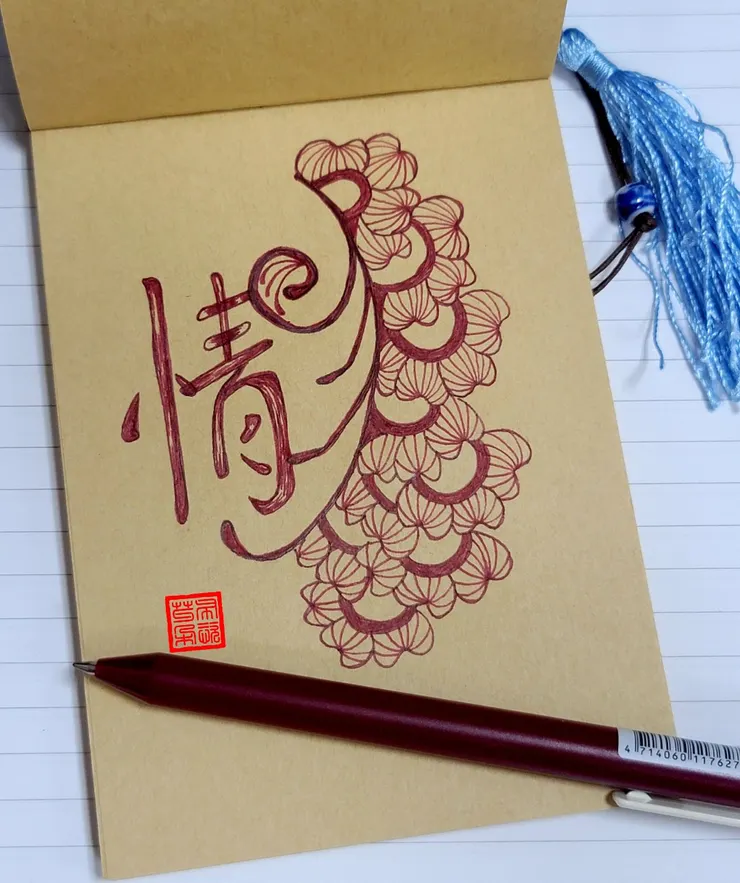 情
4 714060 117627